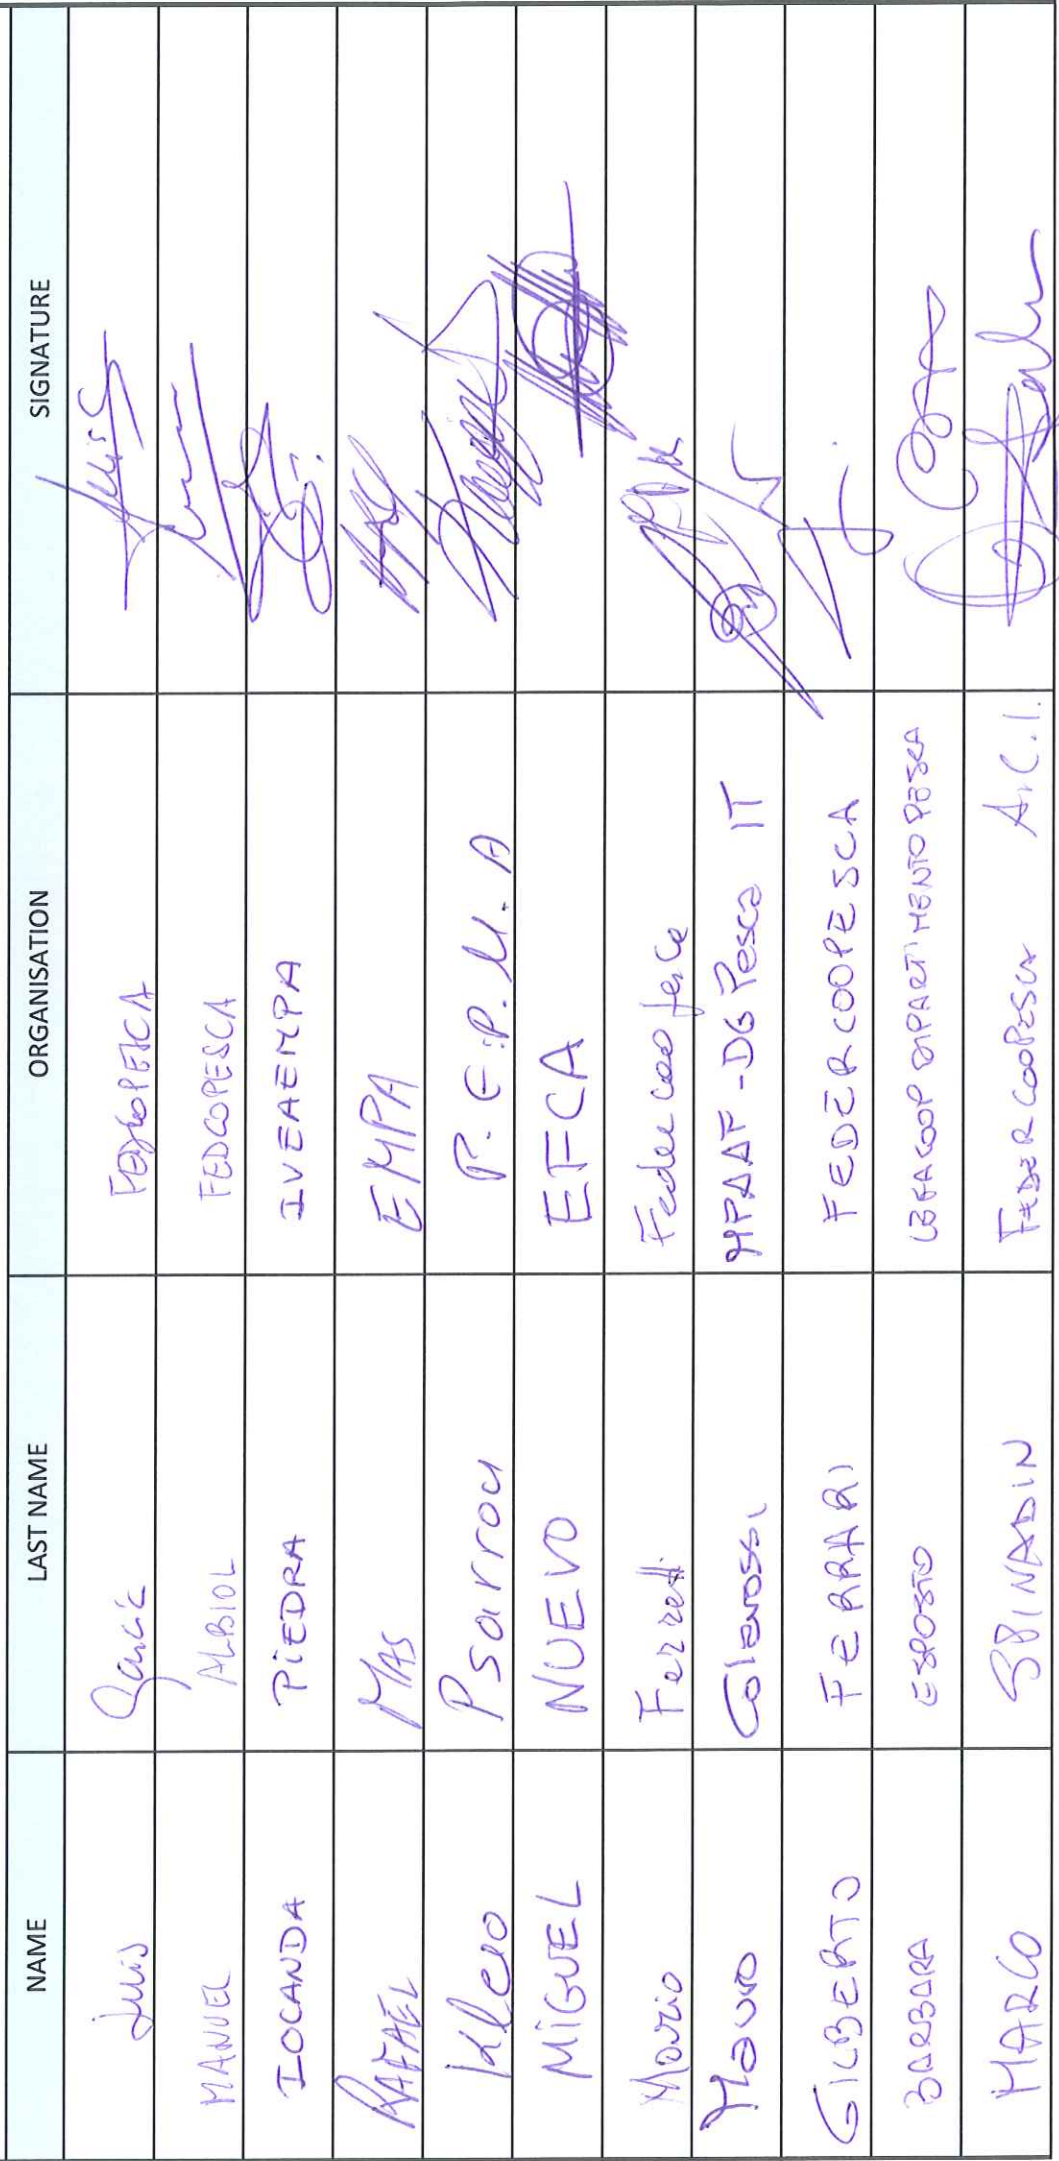 NAME LAST NAME ORGANISATION SIGNATURE
Luis García FEDCOPESCA
MANUEL ALBIOL FEDCOPESCA
IOCANDA PIEDRA IVEAEMPA
RAFAEL MAS EMPA
Psarrou P.E.P.M.A
MIGUEL NUEVO EFCA
Mario Ferretti Federcoopesca
Mauro Colarossi MPAAF - DG Pesca IT
GILBERTO FERRARI FEDERCOOPESCA
BARBARA ESPOSITO LEGACOOP DIPARTIMENTO PESCA
MARCO SPINADIN FEDERCOOPESCA A.C.I.